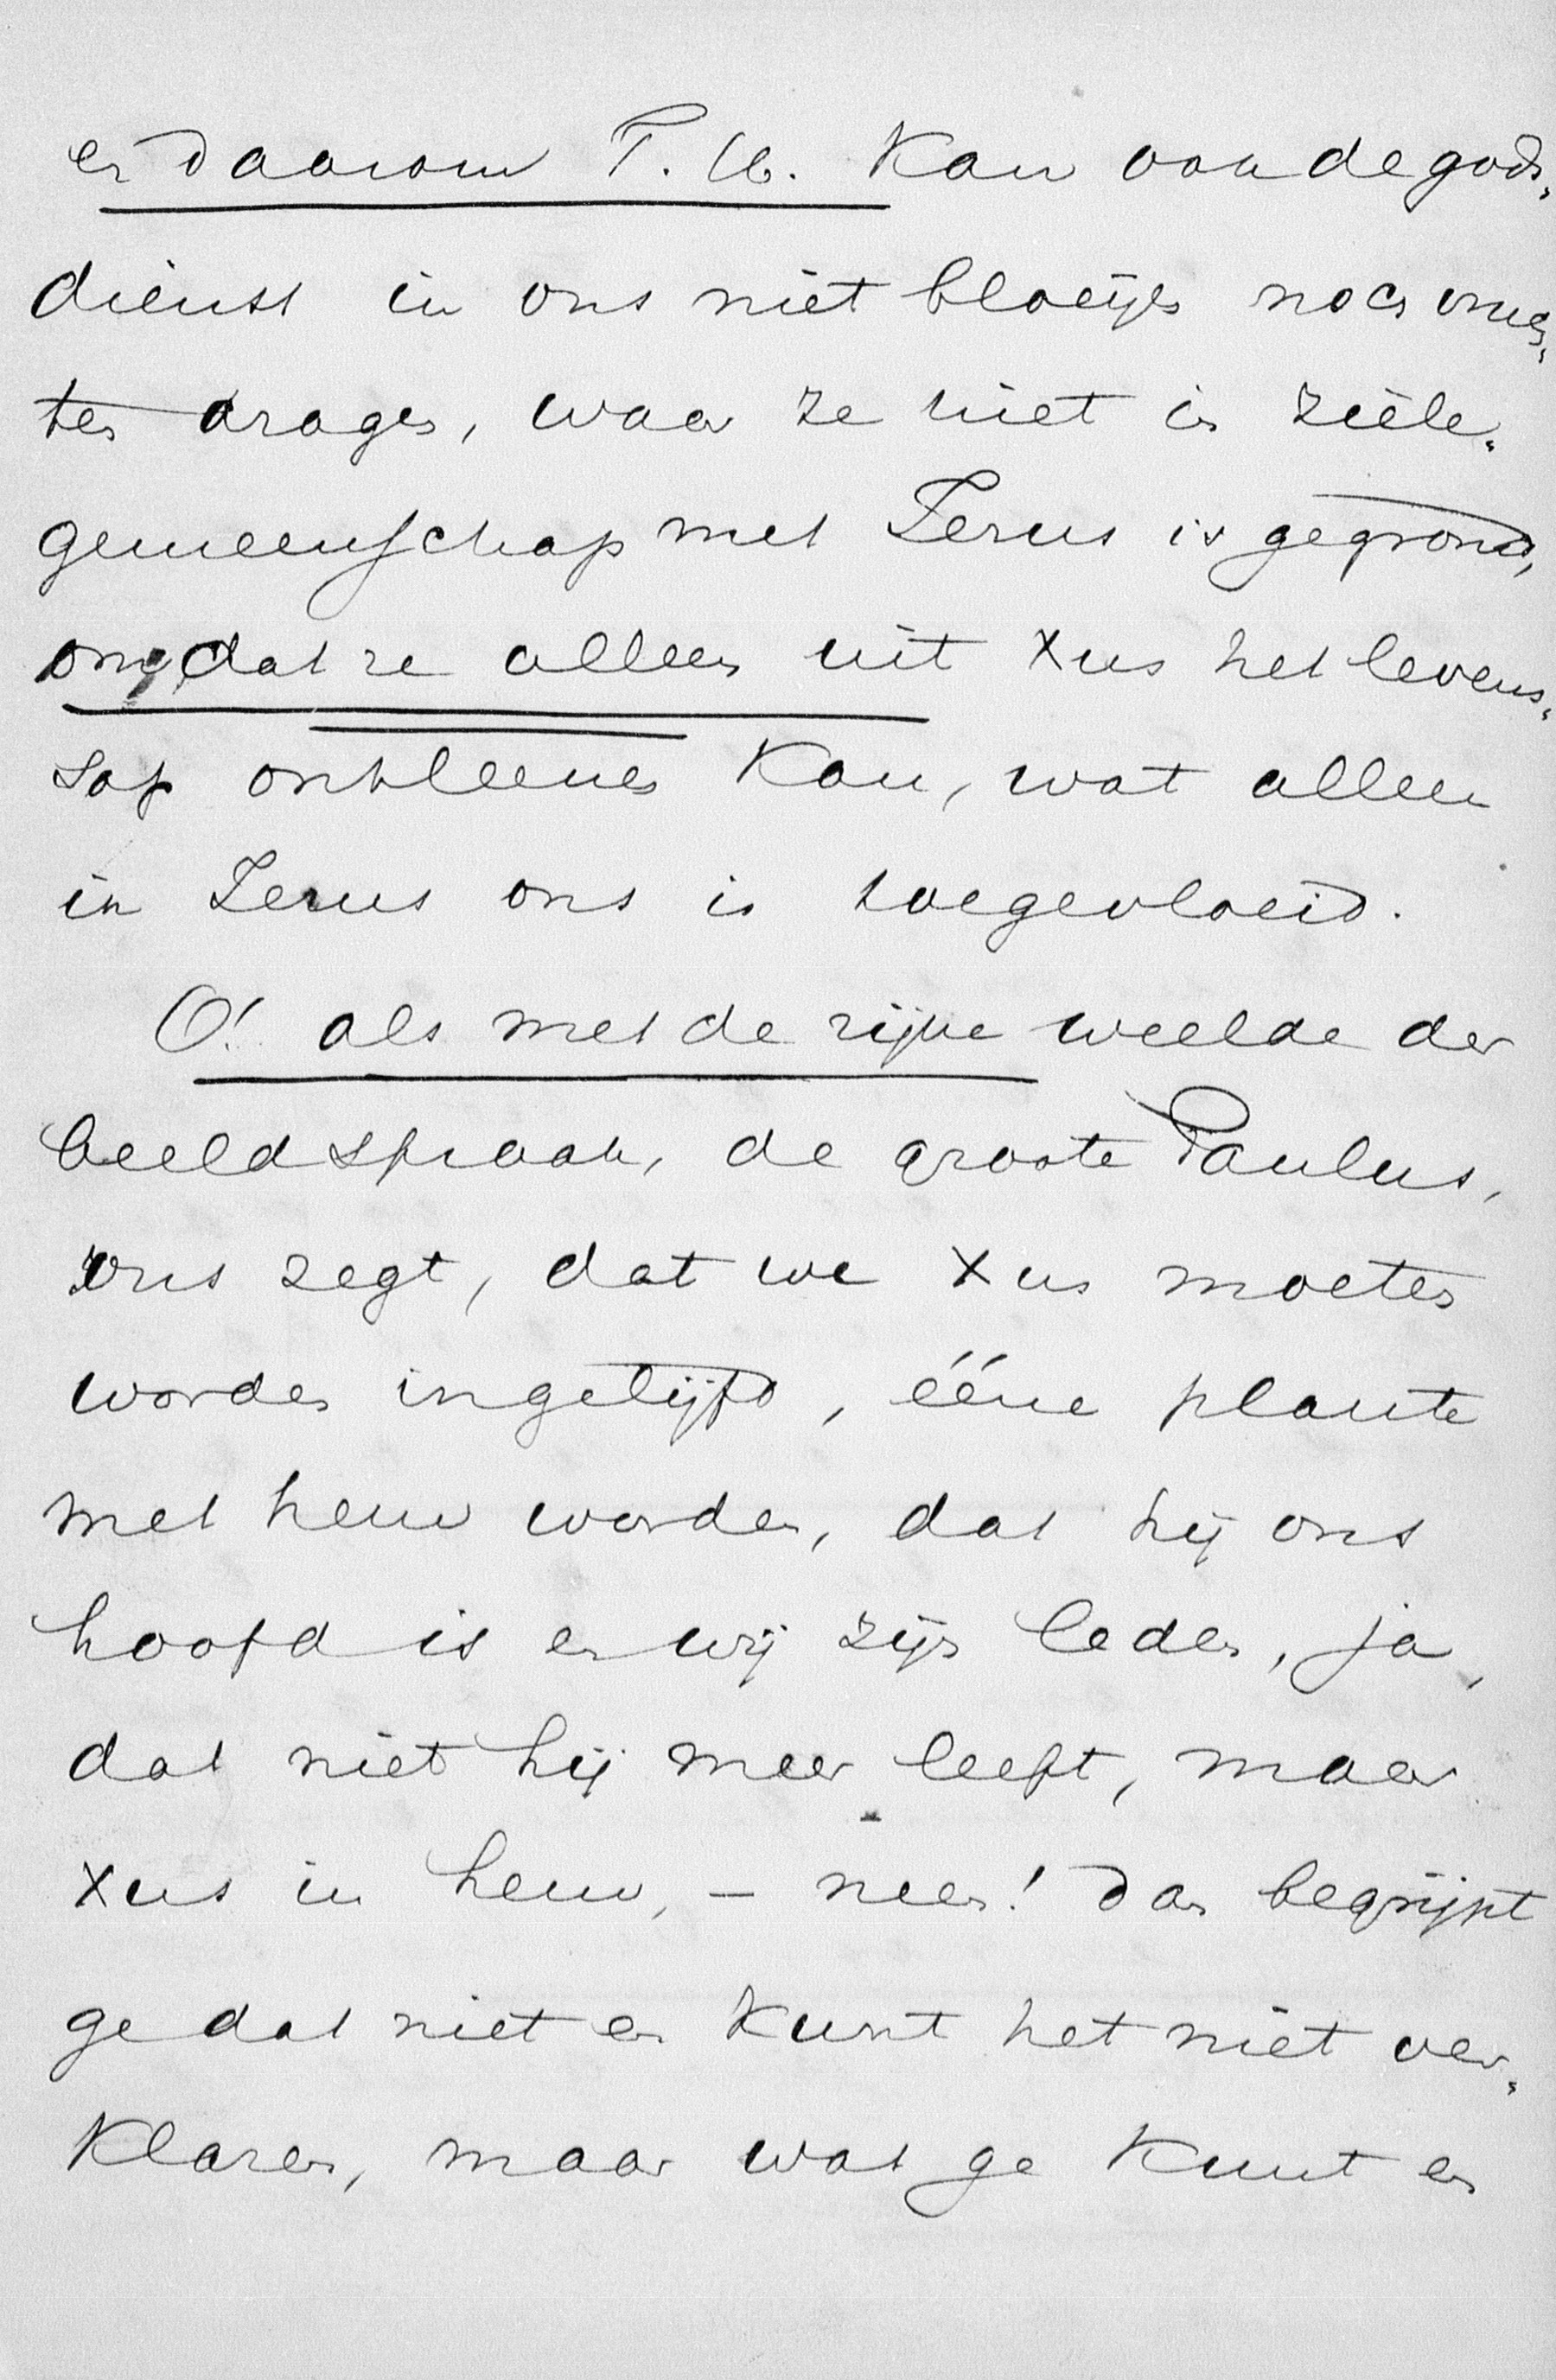 en daarom T. U. kan ook de gods-
dienst in ons niet bloeijen noch vruch-
ten dragen, waar ze niet in ziele-
gemeenschap met Jezus is gegrond,
omdat ze alleen uit Xus het levens-
sap ontleenen kan, wat alleen
in Jezus ons is toegevloeid.
O! als met de rijke weelde der
beeldspraak, de groote Paulus,
ons zegt, dat we Xus moeten
worden ingelijfd, ééne plante
met hem worden, dat hij ons
hoofd is en wij zijn leden, ja,
dat niet hij meer leeft, maar
Xus in hem, – neen! dan begrijpt
ge dat niet en kunt het niet ver-
klaren, maar wat ge kunt en